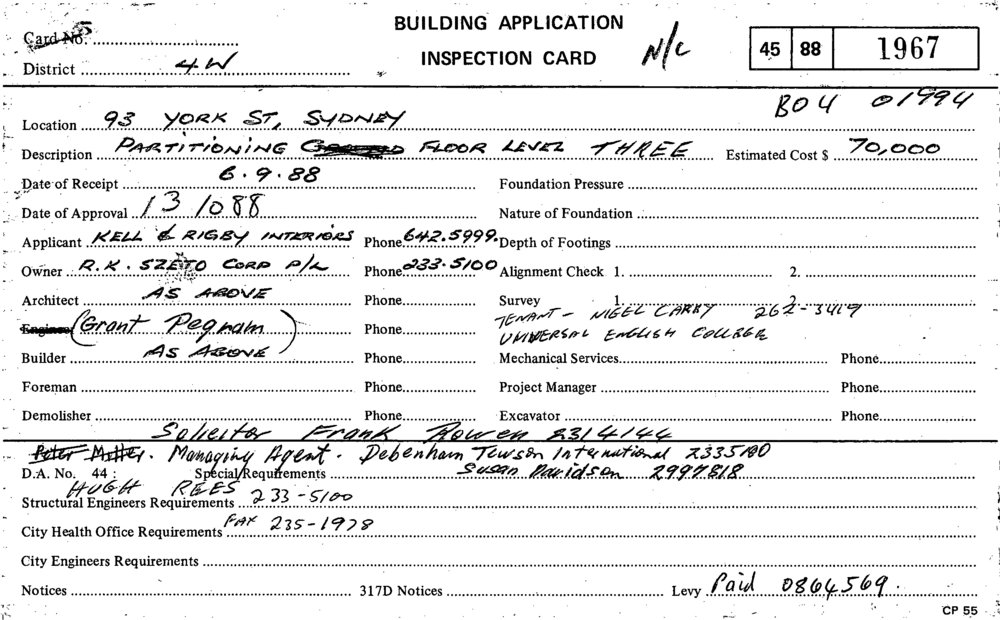 BUILDING APPLICATION
INSPECTION CARD
Card No. 5
District 4W
N/C
45 88 1967
BOU 01994
Location 93 YORK ST, SYDNEY
Description PARTITIONING FLOOR LEVEL THREE Estimated Cost $ 70,000
Date of Receipt 6.9.88 Foundation Pressure
Date of Approval 13 10 88 Nature of Foundation
Applicant KELL & RIGBY INTERIORS Phone 642.5999. Depth of Footings
Owner R.K. SZETO CORP P/L Phone 233.5100 Alignment Check 1. 2.
Architect AS ABOVE Phone Survey 1. 2.
TENANT - NIGEL CARBY 262-3419
Engineer (Grant Pegnam) Phone UNIVERSAL ENGLISH COLLEGE
Builder AS ABOVE Phone Mechanical Services Phone
Foreman Phone Project Manager Phone
Demolisher Phone Excavator Phone
Solicitor Frank Rowen 2314144
Peter Managing Agent. Debenham Tewson International 2335100
D.A. No. 44 : Special Requirements Susan Davidson 2997818
HUGH REES
Structural Engineers Requirements 233-5100
City Health Office Requirements FAX 235-1978
City Engineers Requirements
Notices 317D Notices Levy Paid 0864569.
CP 55